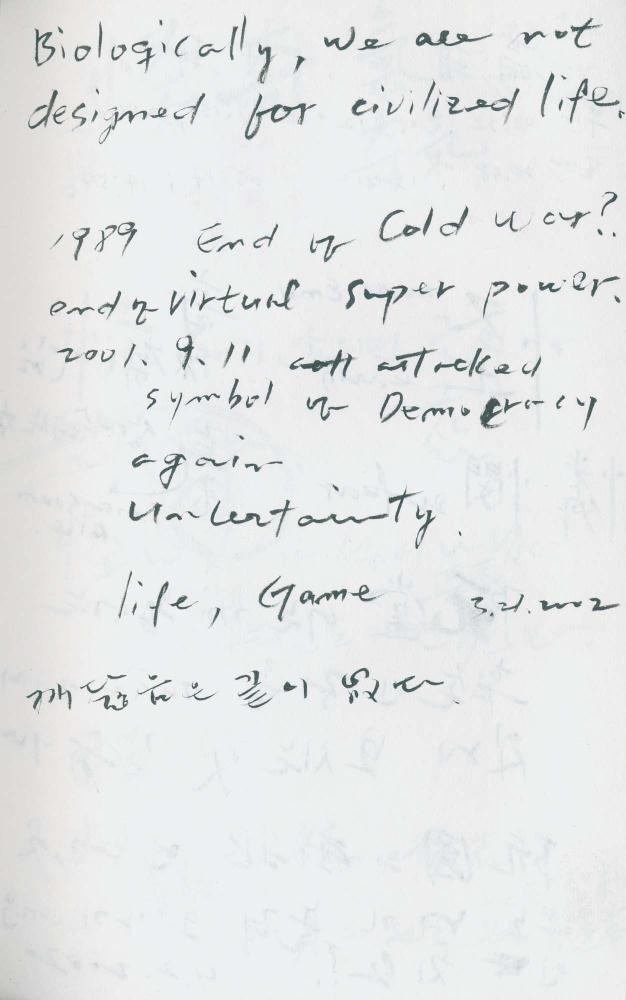 Biologically, we are not
designed for civilized life.
1989 End of Cold War?
end of virtual super power.
2001. 9. 11 attacked
symbol of Democracy
again
Uncertainty.
life, Game 3.21.2002
깨달음은 끝이 없다.